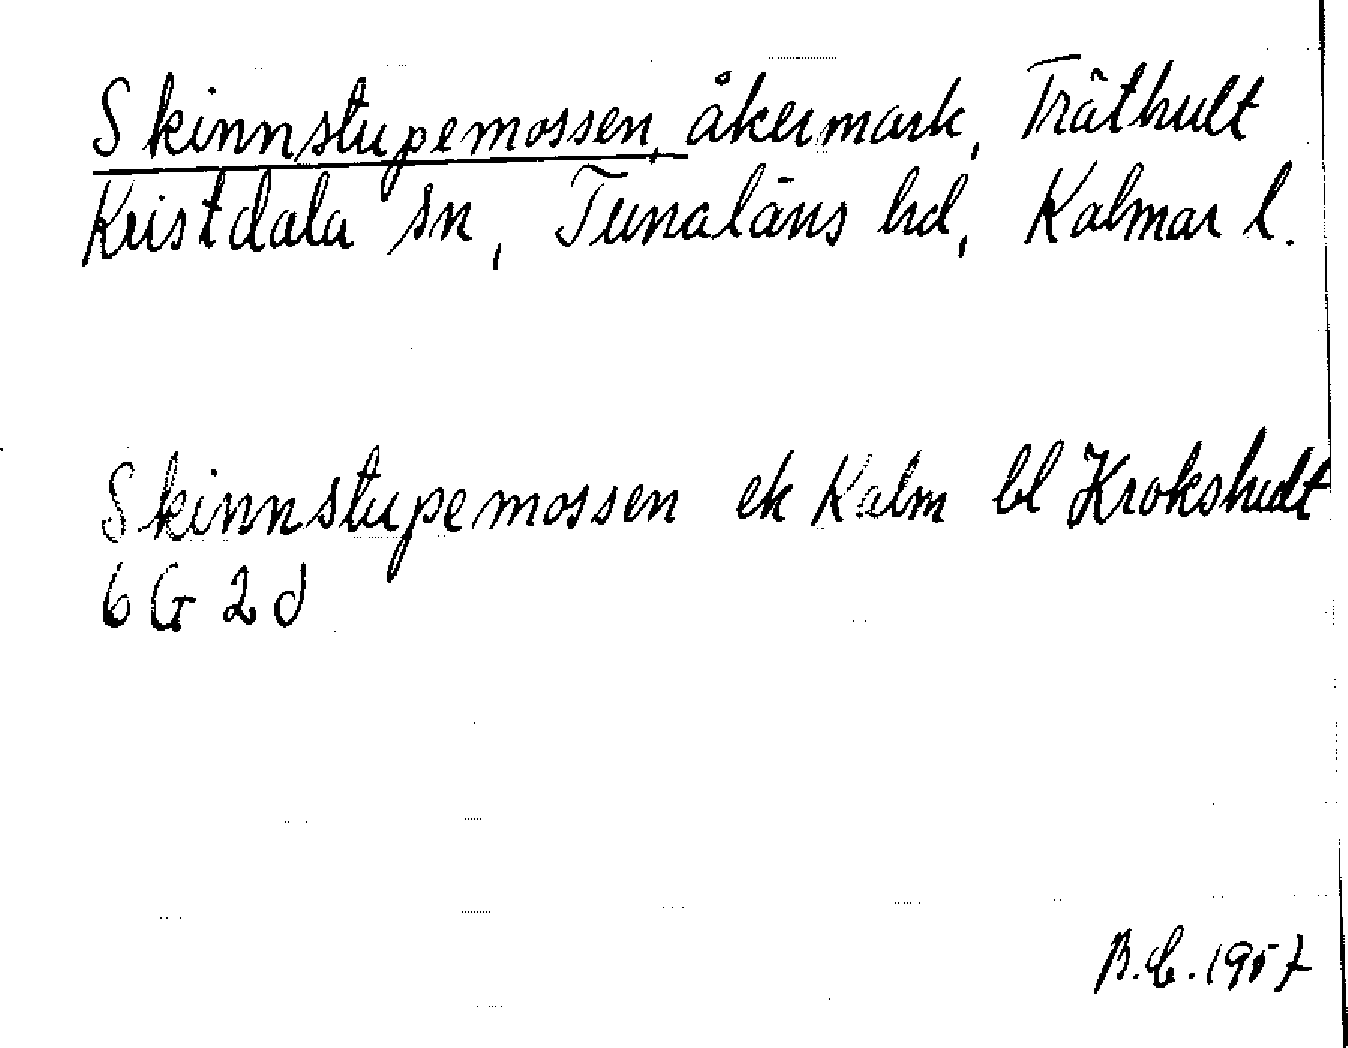 Skinnstupemossen, åkermark, Träthult
Kristdala sn, Tunaläns hd, Kalmar l.
Skinnstupemossen ek Kalm bl Krokshult
6 G 2 d
B.E. 1957